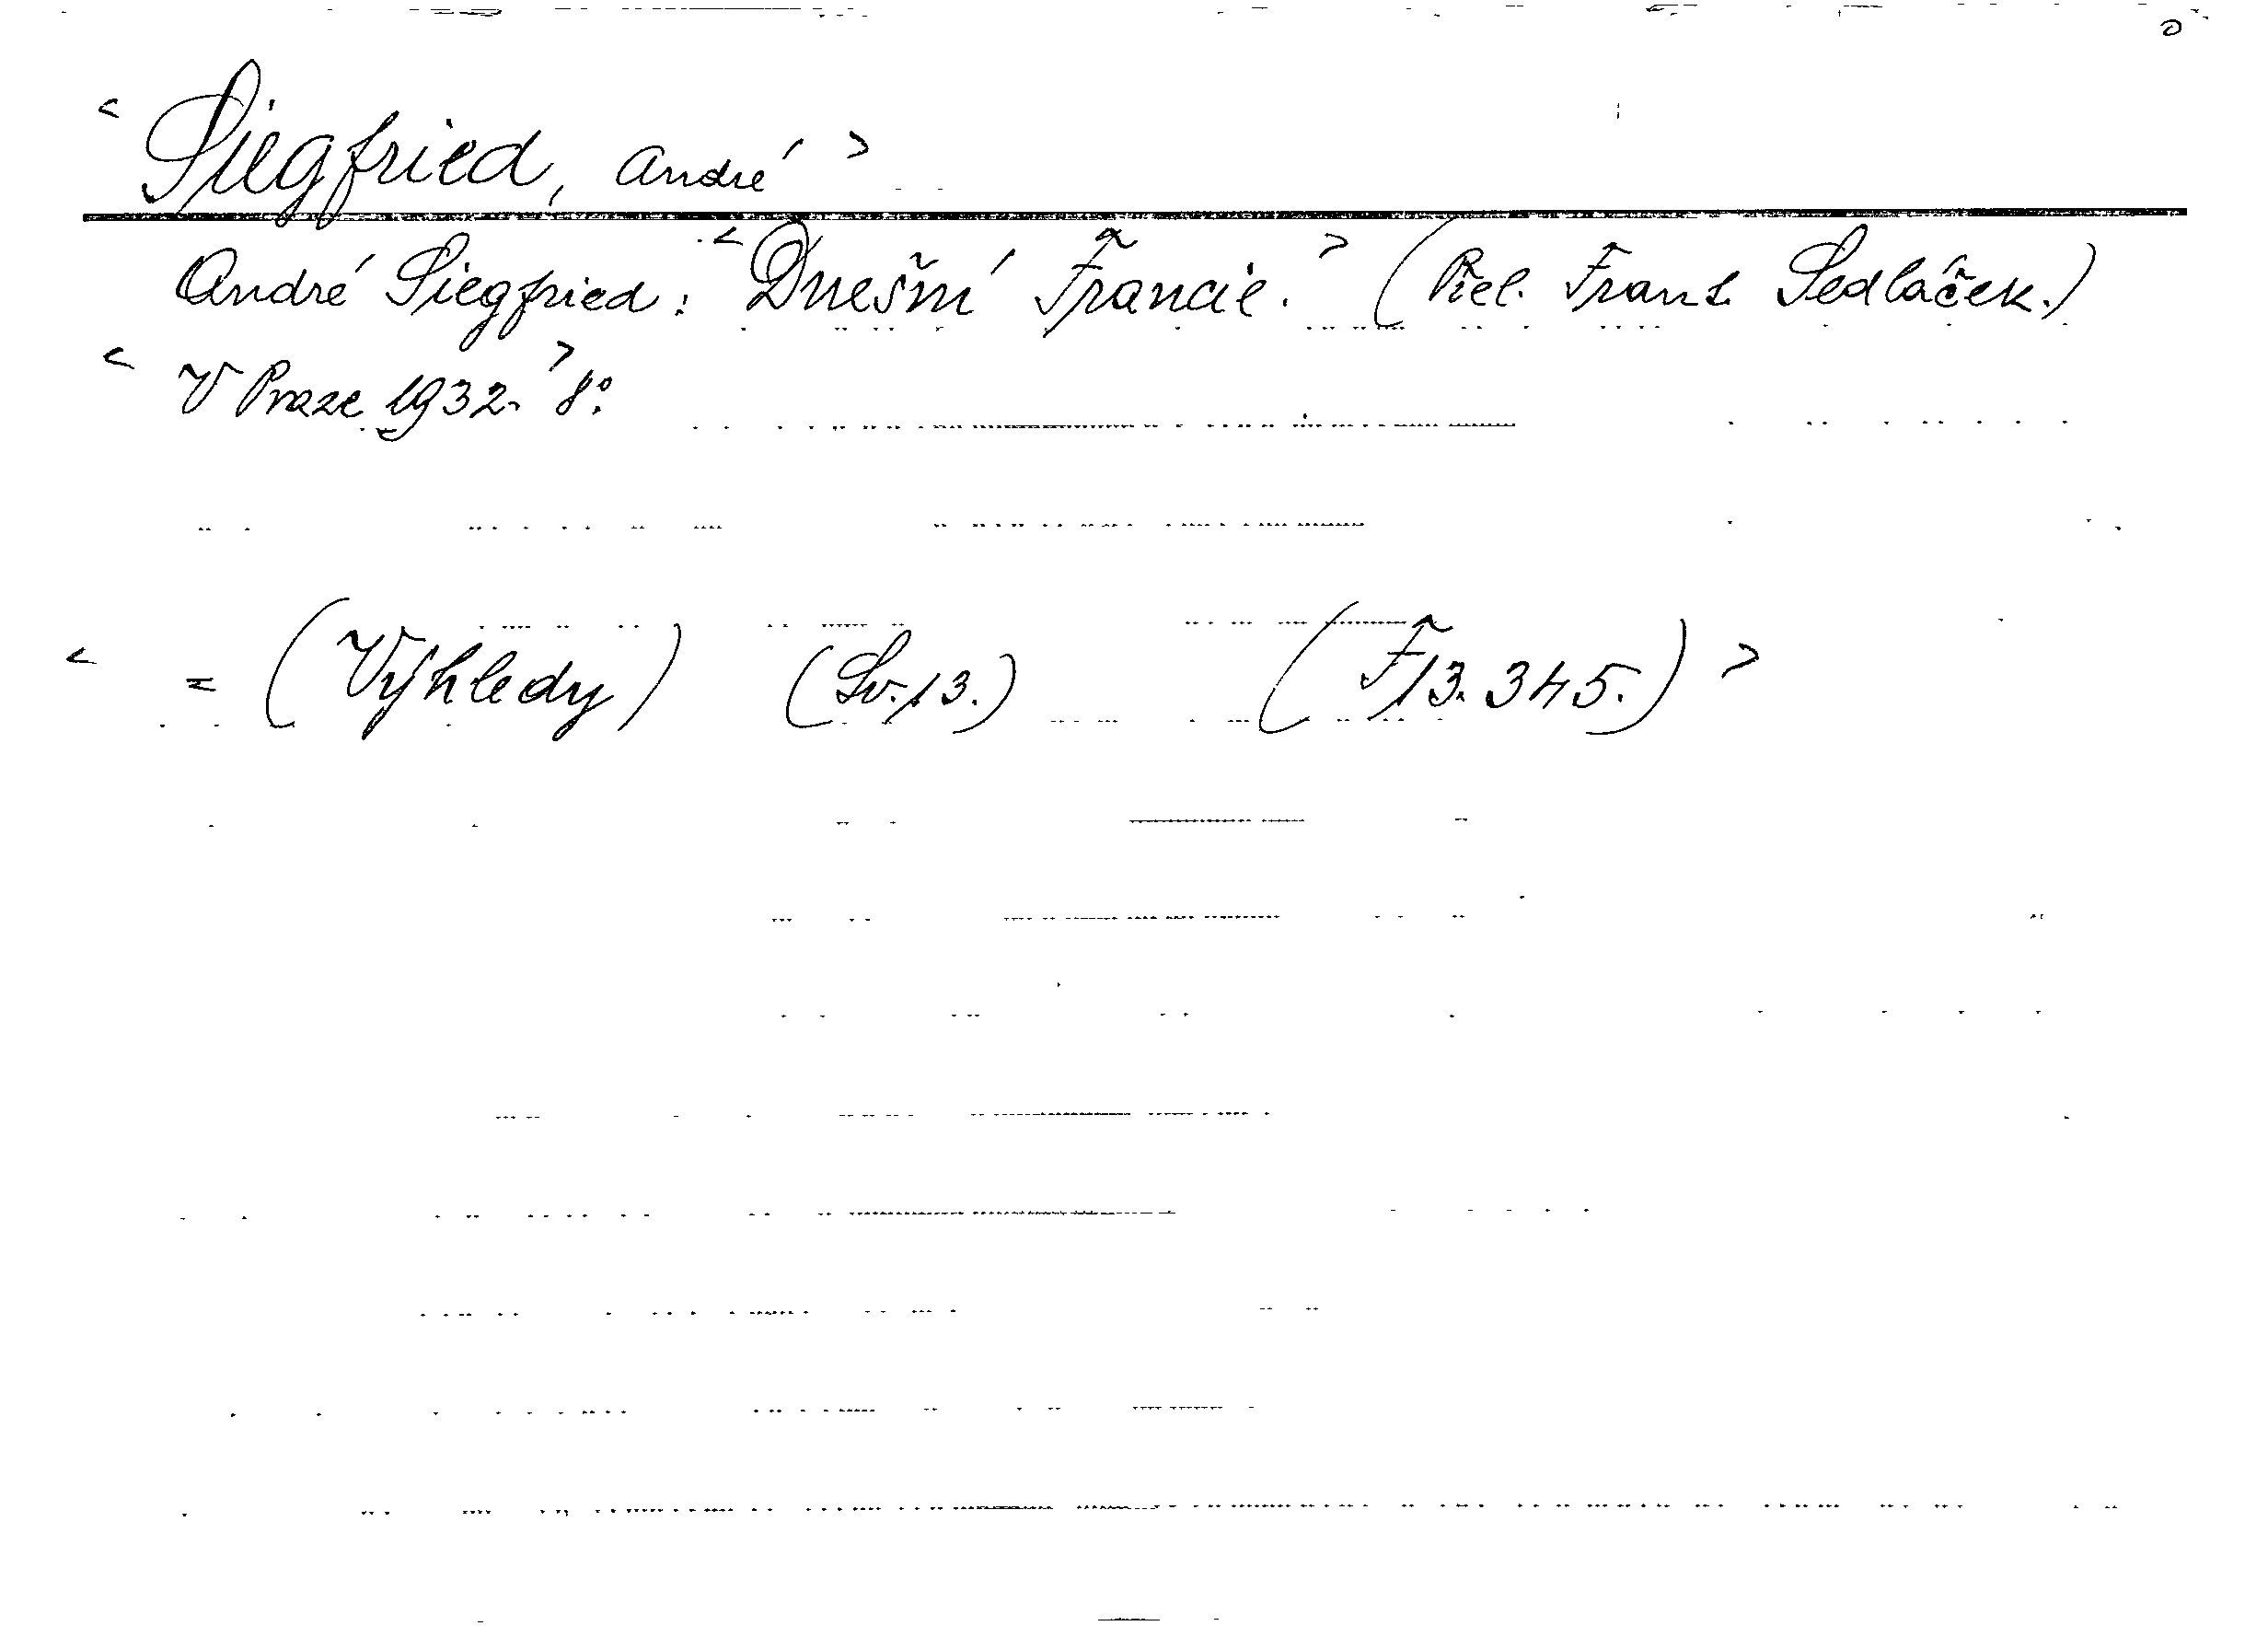 < Siegfried, André >
André Siegfried: < Dnešní Francie. > (Přel. Frant. Sedláček.)
< V Praze 1932. > 8°.
< = (Výhledy) (Sv. 13.) (F 13.345.) >